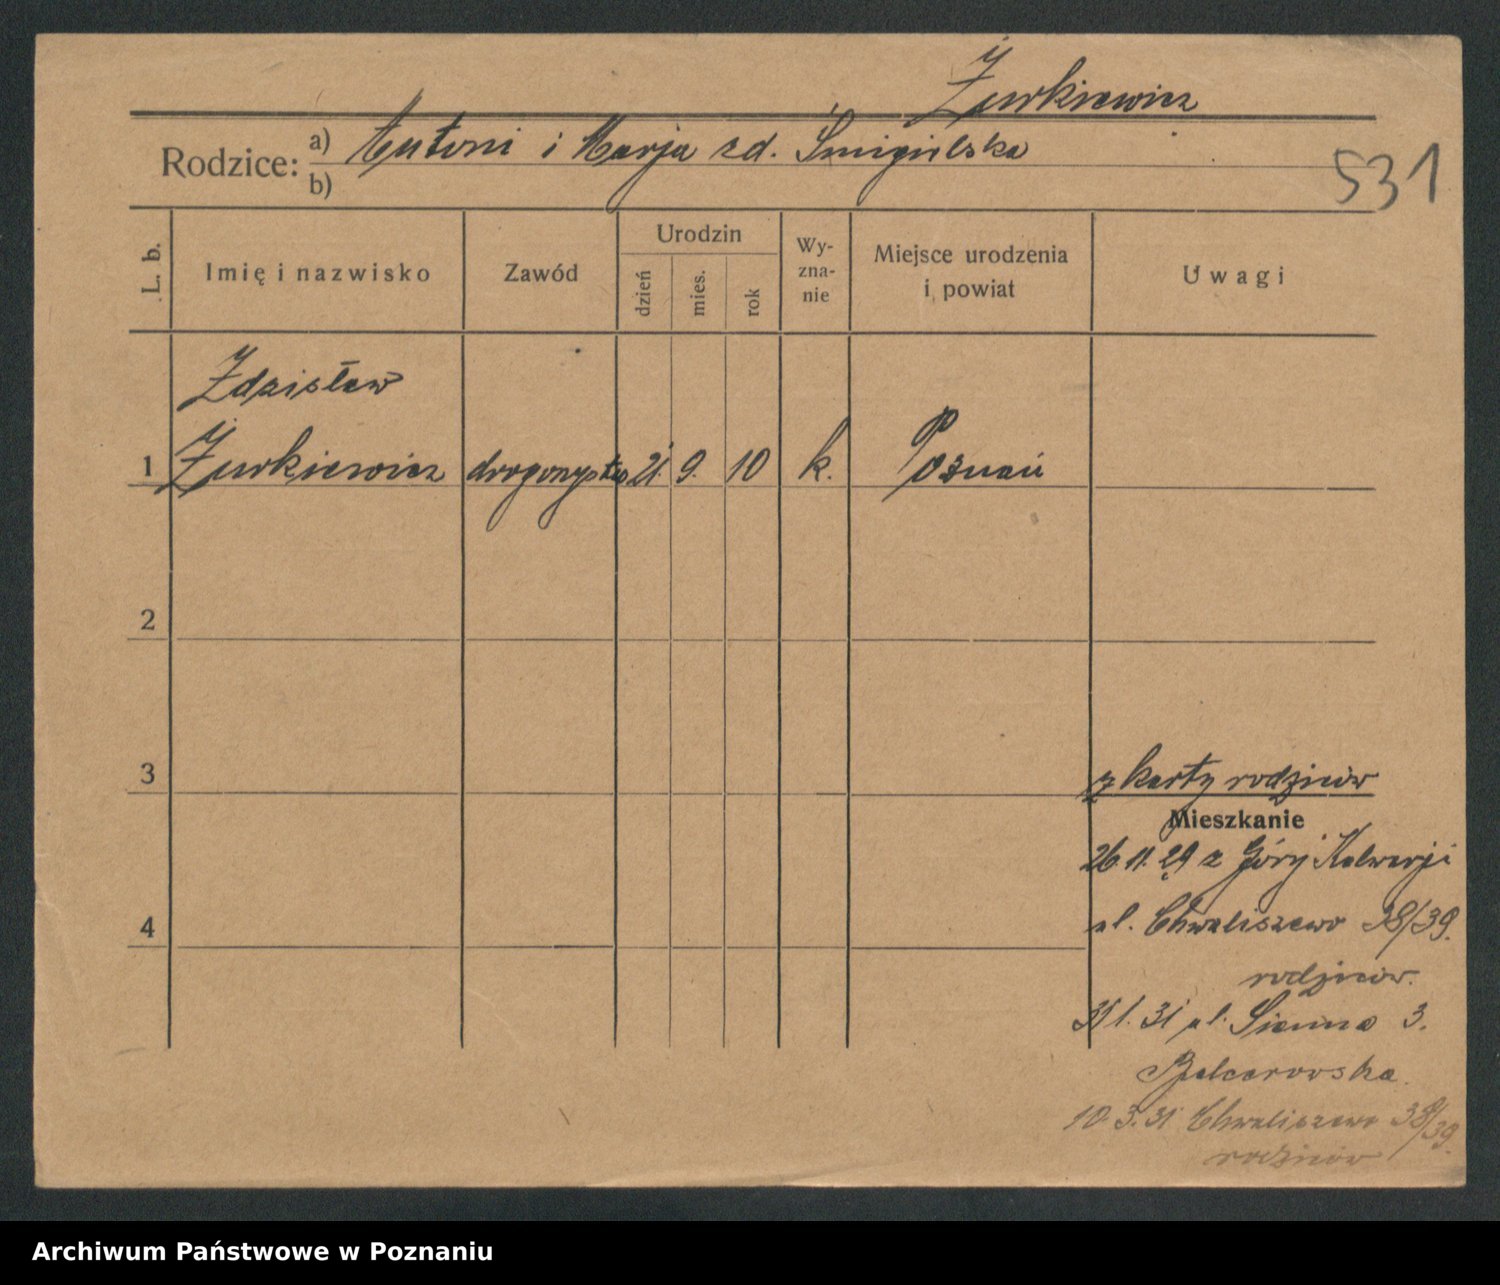 Żurkiewicz
Rodzice: a) Antoni i Marja zd. Śmigielska
b)
531
L. b. Imię i nazwisko Zawód Urodzin dzień mies. rok Wy-zna-nie Miejsce urodzenia i powiat Uwagi
Zdzisław
1 Żurkiewicz 21. 9. 10 k. Poznań
2
3
z karty rodziców
Mieszkanie
26.11.29 z Góry Kalwarji
ul. Chwaliszewo 38/39.
4
rodziców.
31 1. 31 ul. Sienna 3.
Balcerowska.
10.3.31 Chwaliszewo 38/39.
rodziców
Archiwum Państwowe w Poznaniu